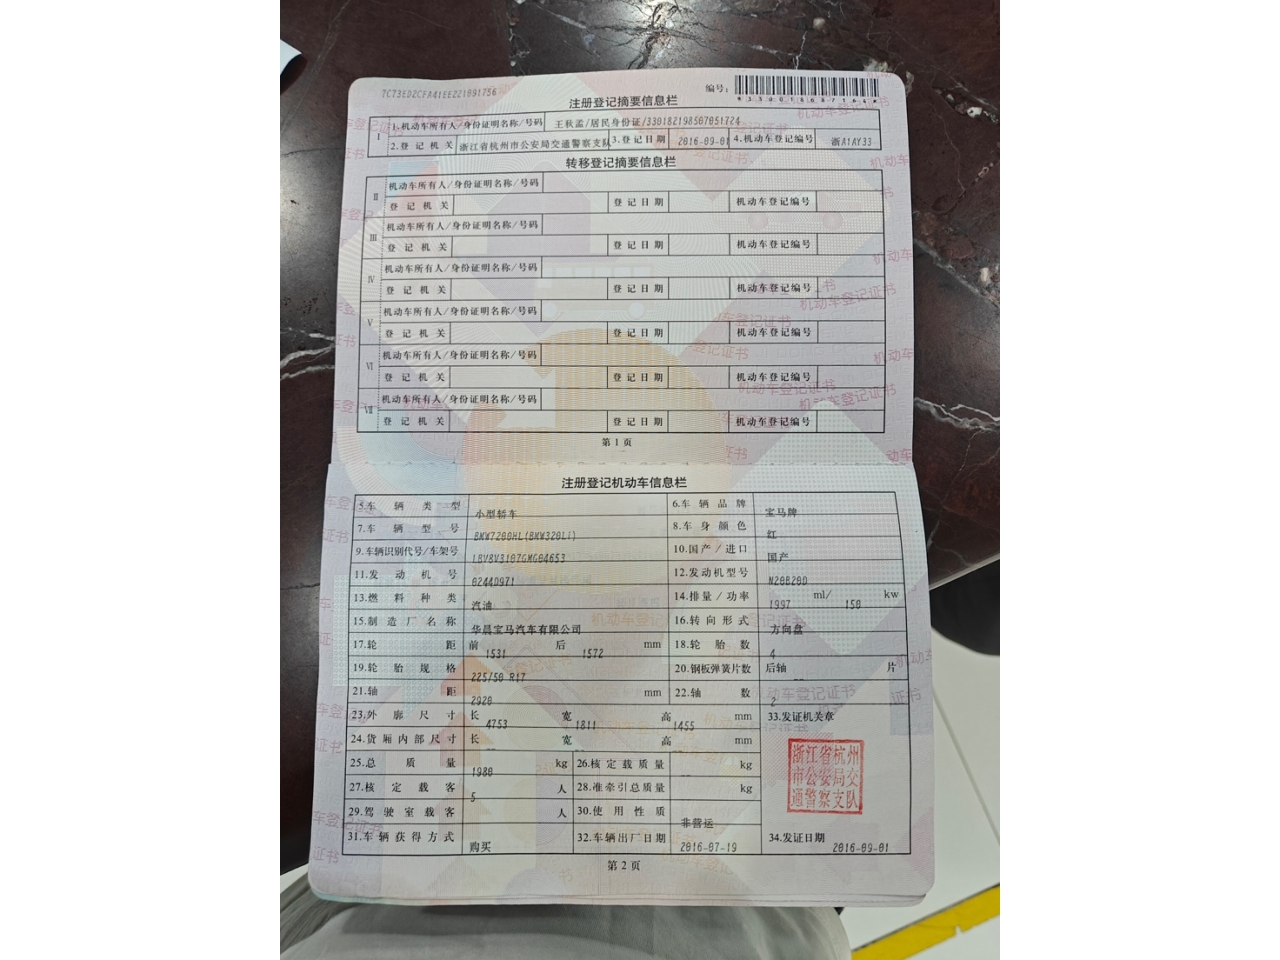 7C73ED2CFA41EE221091756
编号：
注册登记摘要信息栏
I 1.机动车所有人/身份证明名称/号码 王秋孟/居民身份证/330182198507051724
2.登记机关 浙江省杭州市公安局交通警察支队 3.登记日期 2016-09-01 4.机动车登记编号 浙A1AY33
转移登记摘要信息栏
II 机动车所有人/身份证明名称/号码
登记机关 登记日期 机动车登记编号
III 机动车所有人/身份证明名称/号码
登记机关 登记日期 机动车登记编号
IV 机动车所有人/身份证明名称/号码
登记机关 登记日期 机动车登记编号
V 机动车所有人/身份证明名称/号码
登记机关 登记日期 机动车登记编号
VI 机动车所有人/身份证明名称/号码
登记机关 登记日期 机动车登记编号
VII 机动车所有人/身份证明名称/号码
登记机关 登记日期 机动车登记编号
第1页
注册登记机动车信息栏
5.车辆类型 小型轿车 6.车辆品牌 宝马牌
7.车辆型号 BMW7200HL(BMW320Li) 8.车身颜色 红
9.车辆识别代号/车架号 LBV8V3107GMG04653 10.国产/进口 国产
11.发动机号 0244D971 12.发动机型号 N20B20D
13.燃料种类 汽油 14.排量/功率 1997 ml/ 150 kw
15.制造厂名称 华晨宝马汽车有限公司 16.转向形式 方向盘
17.轮距 前 1531 后 1572 mm 18.轮胎数 4
19.轮胎规格 225/50 R17 20.钢板弹簧片数 后轴 -- 片
21.轴距 2920 mm 22.轴数 2
23.外廓尺寸 长 4753 宽 1811 高 1455 mm 33.发证机关章
24.货厢内部尺寸 长 宽 高 mm
25.总质量 1980 kg 26.核定载质量 -- kg
27.核定载客 5 人 28.准牵引总质量 kg
29.驾驶室载客 人 30.使用性质 非营运
31.车辆获得方式 购买 32.车辆出厂日期 2016-07-19 34.发证日期 2016-09-01
浙江省杭州
市公安局交
通警察支队
第2页